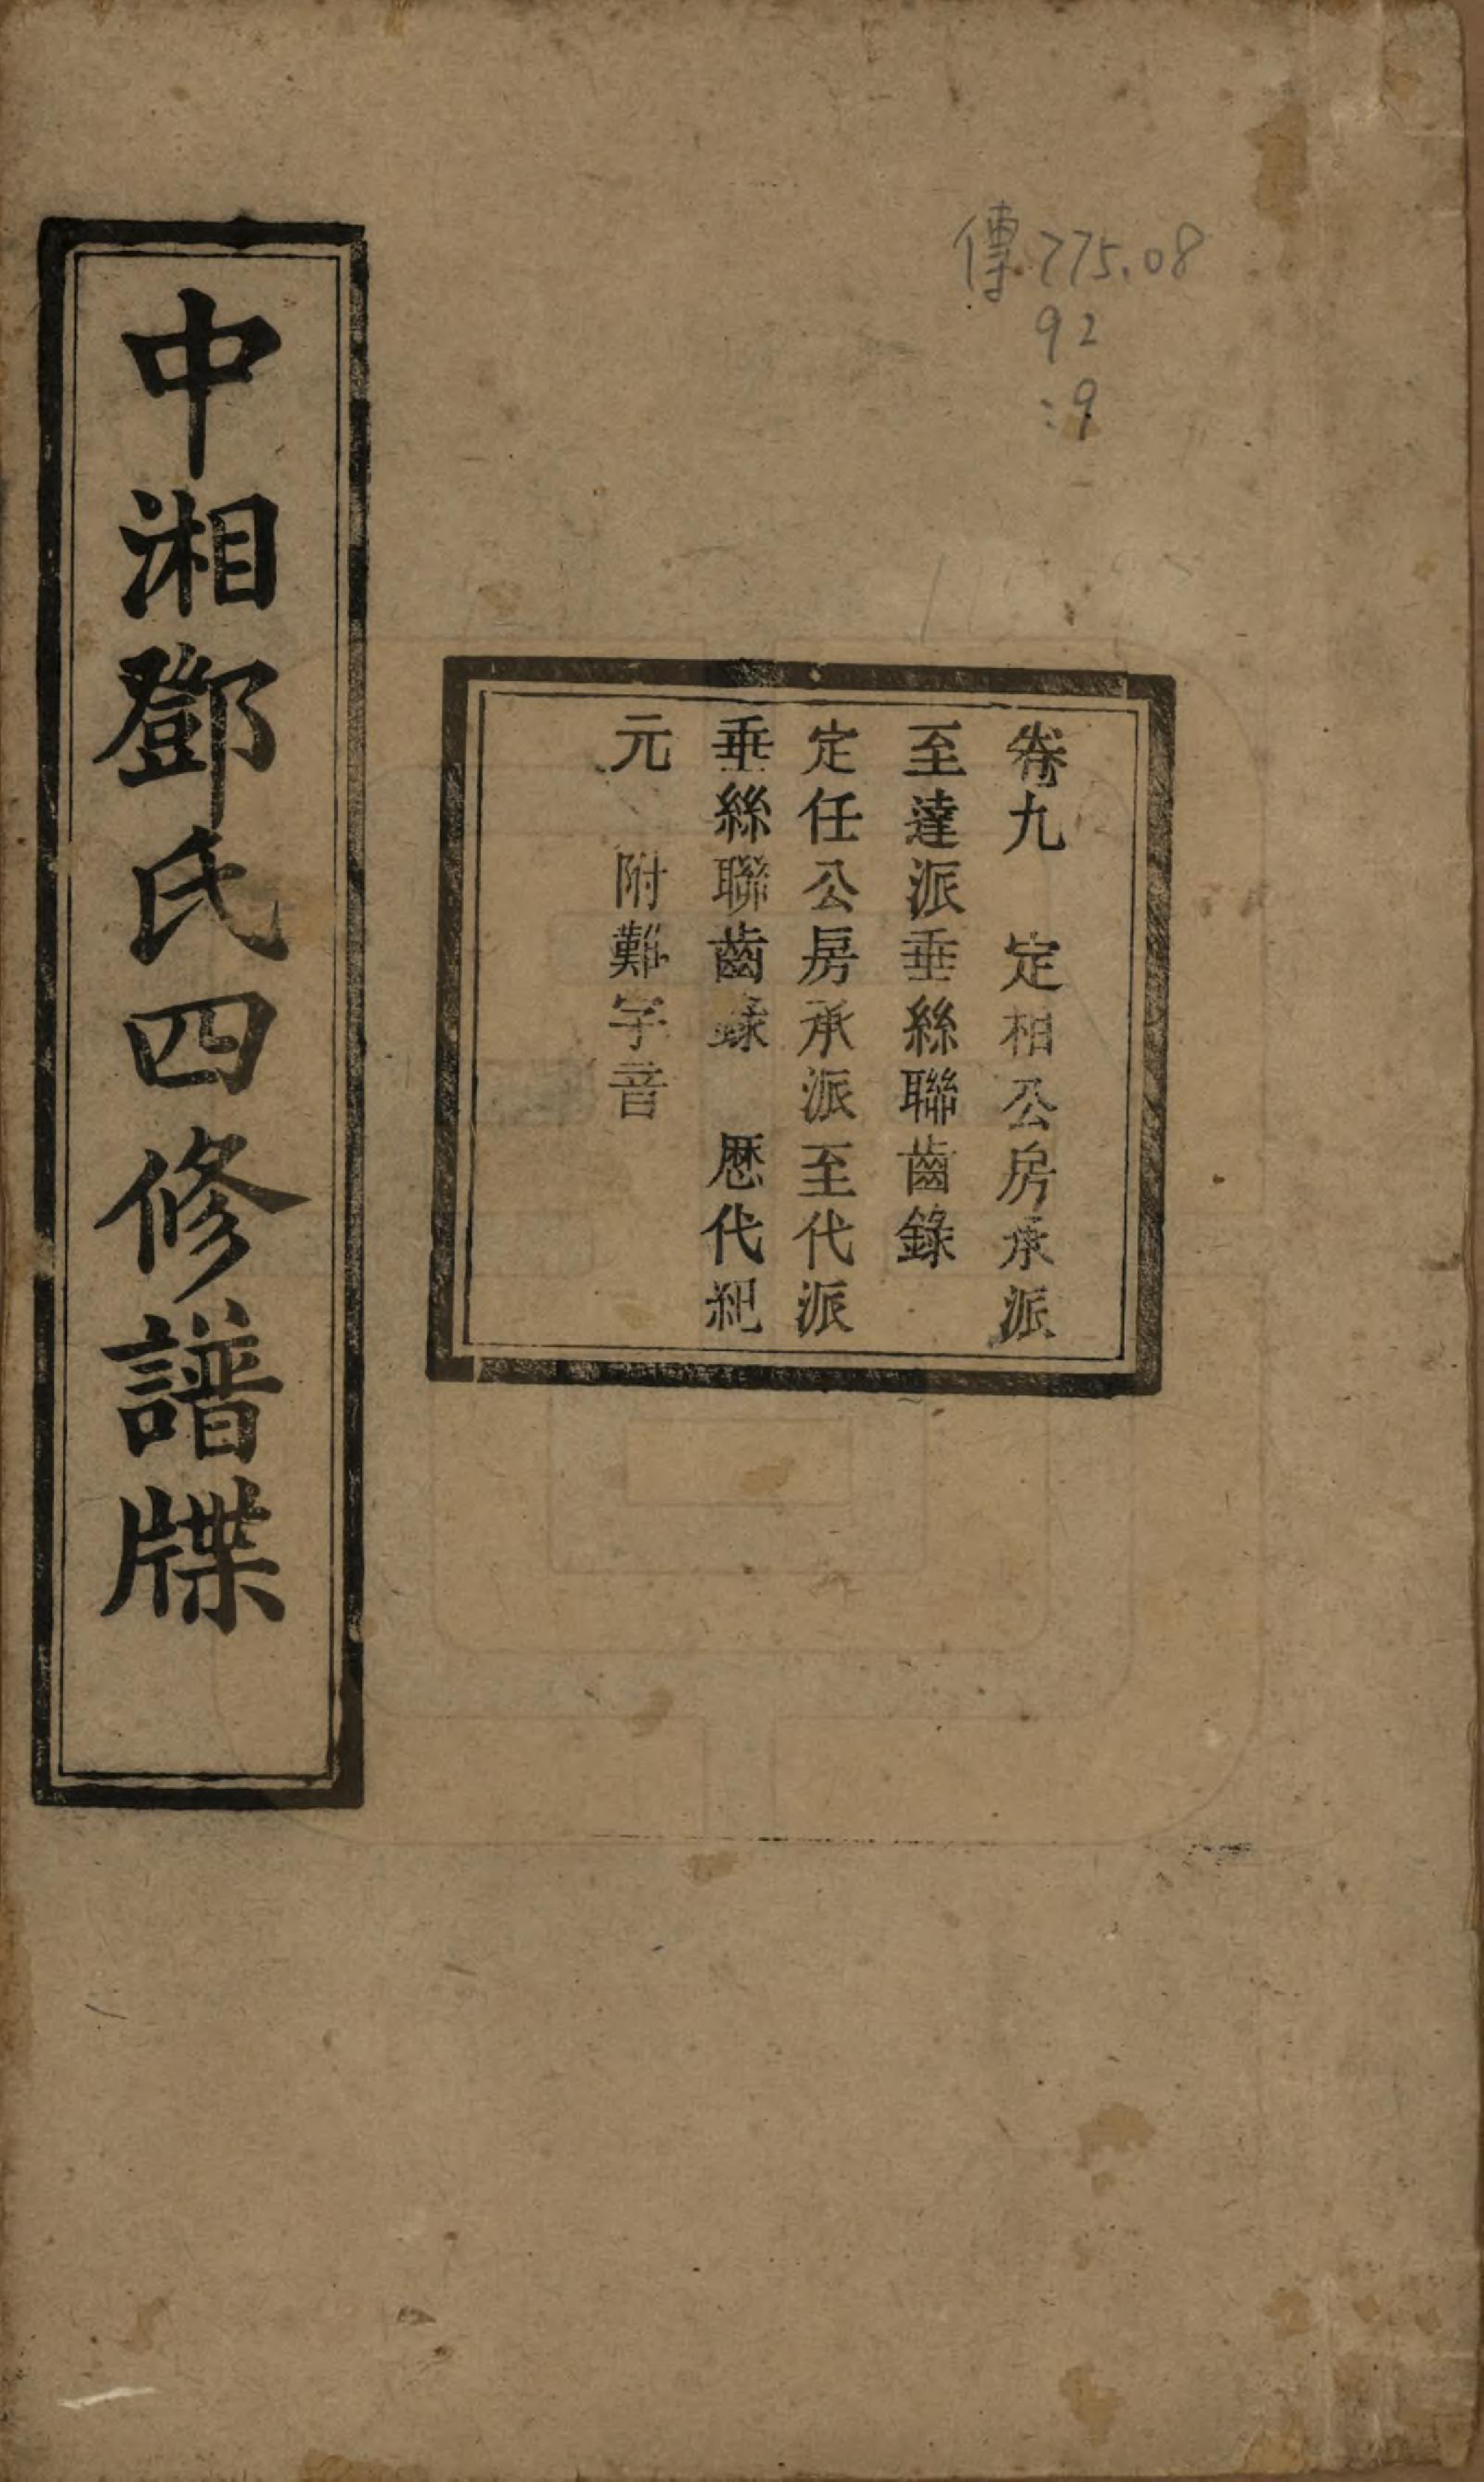 傳775.08
92
:9
卷九 定相公房承派
至達派垂絲聯齒錄
定任公房承派至代派
垂絲聯齒錄 歷代紀
元 附難字音
中湘鄧氏四修譜牒